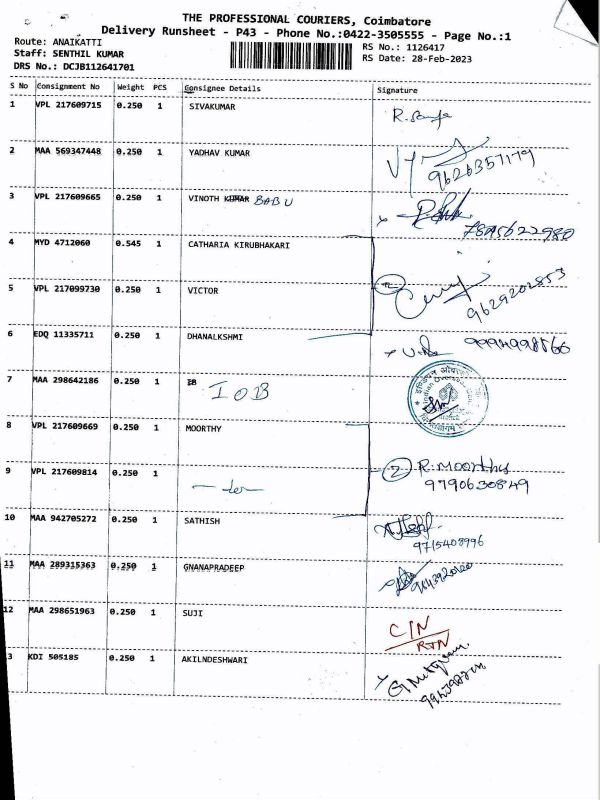 THE PROFESSIONAL COURIERS, Coimbatore
Delivery Runsheet - P43 - Phone No.:0422-3505555 - Page No.:1
Route: ANAIKATTI
RS No.: 1126417
Staff: SENTHIL KUMAR
RS Date: 28-Feb-2023
DRS No.: DCJB112641701
S No Consignment No Weight PCS Consignee Details Signature
1 VPL 217609715 0.250 1 SIVAKUMAR
2 MAA 569347448 0.250 1 YADHAV KUMAR 9626357179
3 VPL 217609665 0.250 1 VINOTH KUMAR BABU
4 MYD 4712060 0.545 1 CATHARIA KIRUBHAKARI
5 VPL 217099730 0.250 1 VICTOR 2 9629202853
6 EDQ 11335711 0.250 1 DHANALKSHMI
7 MAA 298642186 0.250 1 IOB
8 VPL 217609669 0.250 1 MOORTHY
9 VPL 217609814 0.250 1 2 R. Moorthy
9790630849
10 MAA 942705272 0.250 1 SATHISH
9715408996
11 MAA 289315363 0.250 1 GNANAPRADEEP
12 MAA 298651963 0.250 1 SUJI C/N
RTN
3 KDI 505185 0.250 1 AKILNDESHWARI